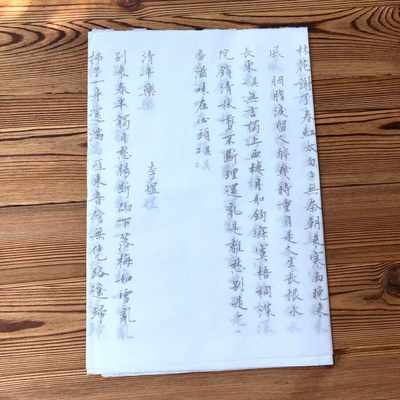 林花謝了春紅太匆匆無奈朝來寒雨晚來
風 胭脂淚留人醉幾時重自是人生長恨水
長東 無言獨上西樓月如鉤寂寞梧桐深
院鎖清秋剪不斷理還亂是離愁別是一
番滋味在心頭
清平樂
李煜
別來春半觸目愁腸斷砌下落梅如雪亂
拂了一身還滿 雁來音信無憑路遙歸